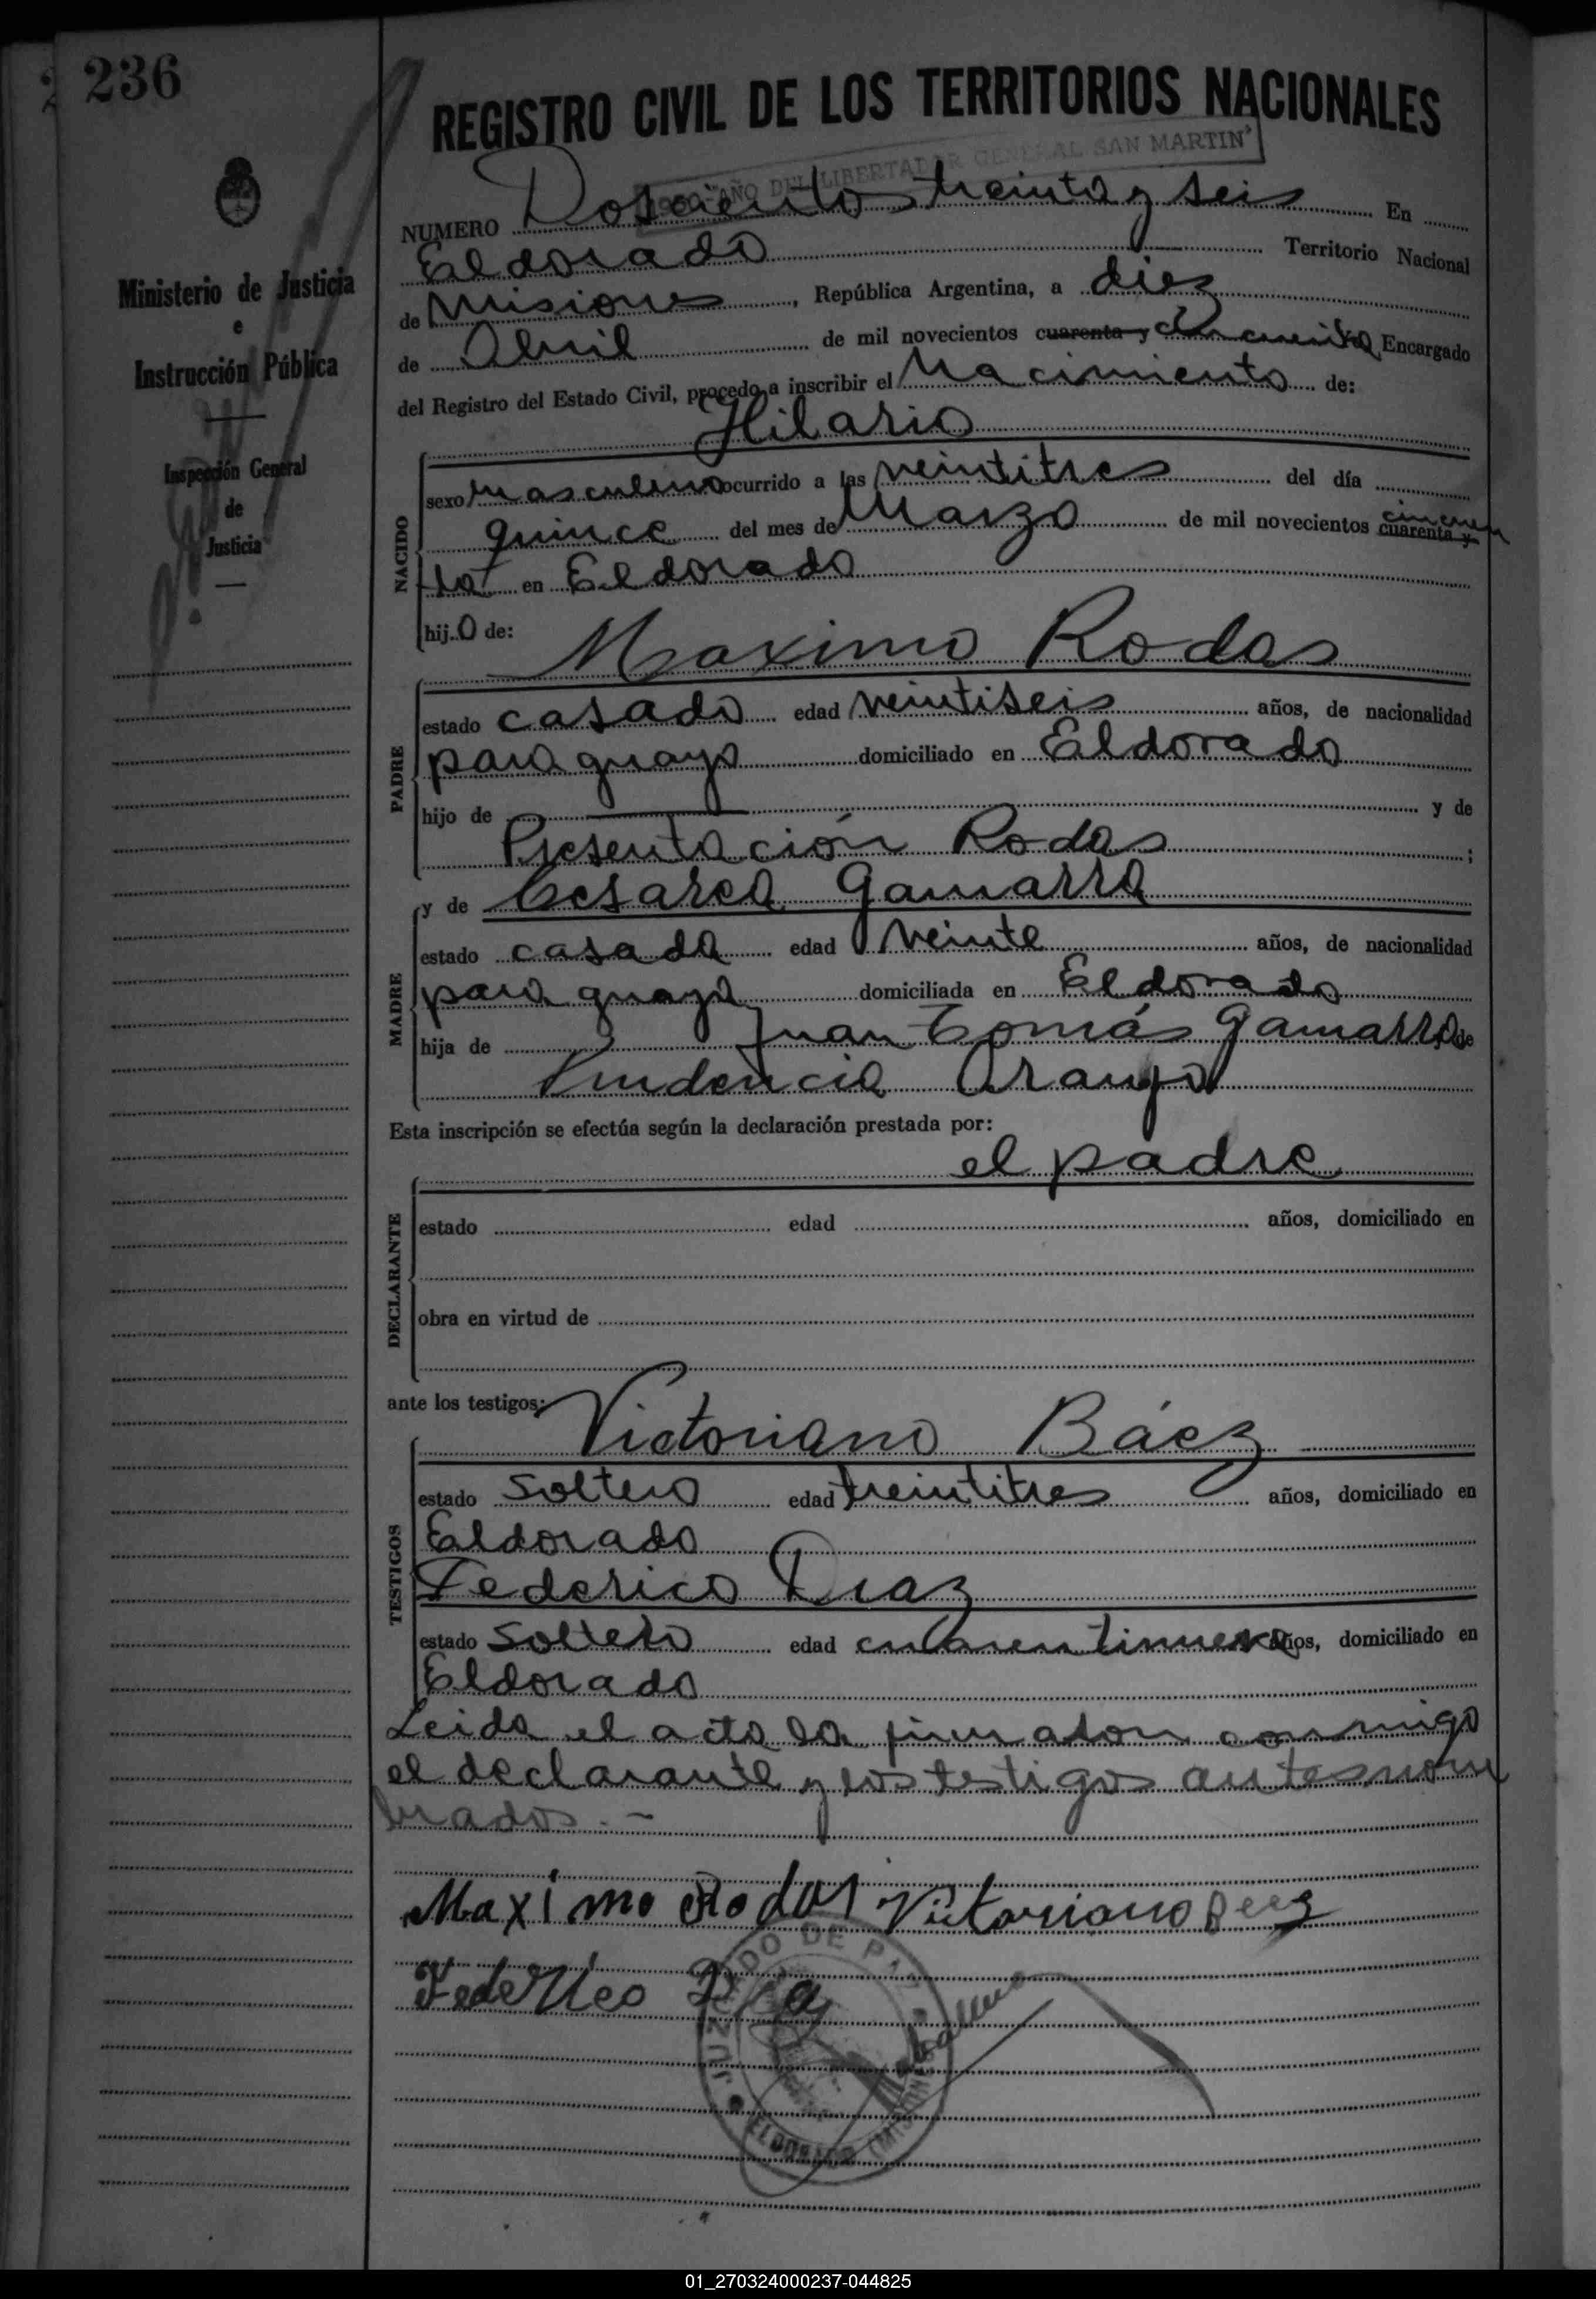 236
REGISTRO CIVIL DE LOS TERRITORIOS NACIONALES
AÑO DEL LIBERTADOR GENERAL SAN MARTIN
Ministerio de Justicia
e
Instrucción Pública
Inspección General
de
Justicia
NUMERO Dosciento treinta y seis En
Eldorado Territorio Nacional
de Misiones, República Argentina, a diez
de Abril de mil novecientos cuarenta y cincuenta Encargado
del Registro del Estado Civil, procedo a inscribir el Nacimiento de:
Hilario
NACIDO
sexo masculino ocurrido a las veintitres del día
quince del mes de Marzo de mil novecientos cuarenta y cincuen
ta en Eldorado
hijo de:
Maximo Rodas
PADRE
estado casado edad veintiseis años, de nacionalidad
paraguayo domiciliado en Eldorado
hijo de y de
Presentación Rodas ;
y de Cesarea Gamarra
MADRE
estado casada edad veinte años, de nacionalidad
paraguaya domiciliada en Eldorado
hija de Juan Tomás Gamarra y de
Prudencia Araujo
Esta inscripción se efectúa según la declaración prestada por:
el padre
DECLARANTE
estado edad años, domiciliado en
obra en virtud de
ante los testigos:
Victoriano Báez
TESTIGOS
estado soltero edad treintitres años, domiciliado en
Eldorado
Federico Diaz
estado soltero edad cuarentinueve años, domiciliado en
Eldorado
Leida el acta la firmaron conmigo
el declarante y los testigos antesnom
brados. -
Maximo Rodas Victoriano
Federico Diaz
JUZGADO DE PAZ
ELDORADO (MISIONES)
01_270324000237-044825